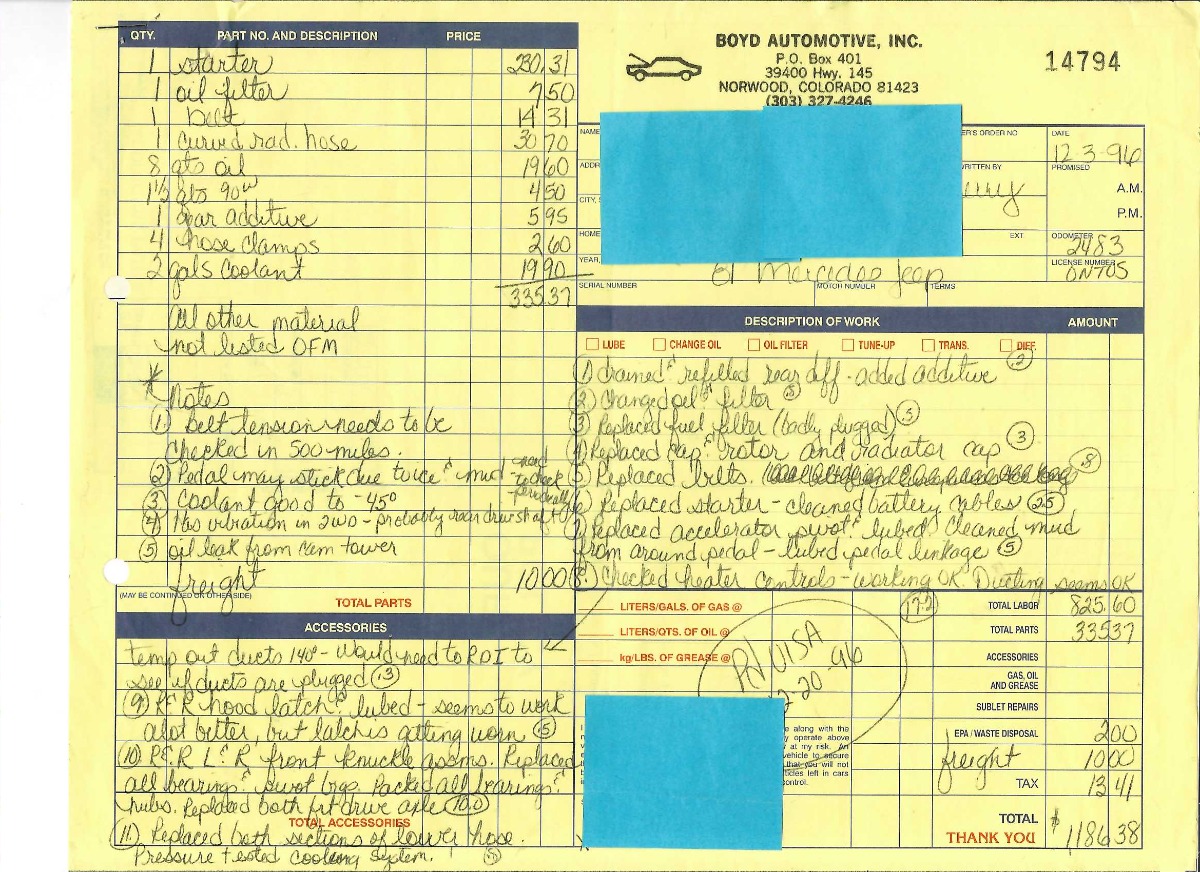 QTY. PART NO. AND DESCRIPTION PRICE
1 starter 230.31
1 oil filter 7 50
1 belt 14 31
1 curved rad. hose 30 70
8 qts oil 19 60
1½ qts 90w 4 50
1 gear additive 5 95
4 hose clamps 2 60
2 gals coolant 19 90
335.37
All other material
not listed OFM
* Notes
(1) Belt tension needs to be
checked in 500 miles.
(2) Pedal may stick due to ice & mud - need to check personally
(3) Coolant good to -45°
(4) Has vibration in 2WD - probably rear driveshaft
(5) oil leak from cam tower
freight 10 00
(MAY BE CONTINUED ON OTHER SIDE)
TOTAL PARTS
ACCESSORIES
temp out ducts 140° - Would need to RDI to
see if ducts are plugged (.3)
(9) R&R hood latch & lubed - seems to work
alot better, but latch is getting worn (.5)
(10) R&R L & R front knuckle assms. Replaced
all bearings & pivot brgs. Packed all bearings &
hubs. Replaced both frt drive axle (10.0)
TOTAL ACCESSORIES
(11) Replaced both sections of lower hose.
Pressure tested cooling system. (.5)
BOYD AUTOMOTIVE, INC.
P.O. Box 401
39400 Hwy. 145
NORWOOD, COLORADO 81423
(303) 327-4246
14794
NAME
ER'S ORDER NO
DATE
12-3-96
ADDR
WRITTEN BY
PROMISED
A.M.
P.M.
CITY, S
HOME
EXT.
ODOMETER
2483
YEAR,
61 Mercedes Jeep
LICENSE NUMBER
ONTOS
SERIAL NUMBER
MOTOR NUMBER
TERMS
DESCRIPTION OF WORK AMOUNT
LUBE CHANGE OIL OIL FILTER TUNE-UP TRANS. DIFF.
(1) drained & refilled rear diff - added additive (.2)
(2) Changed oil & filter (.5)
(3) Replaced fuel filter (badly plugged) (.5)
(4) Replaced cap & rotor and radiator cap (.3)
(5) Replaced belts. (.8)
(6) Replaced starter - cleaned battery cables (2.5)
(7) Replaced accelerator pivot & lubed. Cleaned mud
from around pedal - lubed pedal linkage (.5)
(8) Checked heater controls - working OK. Ducting seems OK
LITERS/GALS. OF GAS @
LITERS/QTS. OF OIL @
kg/LBS. OF GREASE @
TOTAL LABOR 825.60
TOTAL PARTS 335 37
ACCESSORIES
GAS, OIL
AND GREASE
SUBLET REPAIRS
EPA / WASTE DISPOSAL 2 00
freight 10 00
TAX 13 41
TOTAL $1186.38
THANK YOU
VISA
2-20-96
e along with the
y operate above
at my risk. An
vehicle to secure
that you will not
ticles left in cars
control.